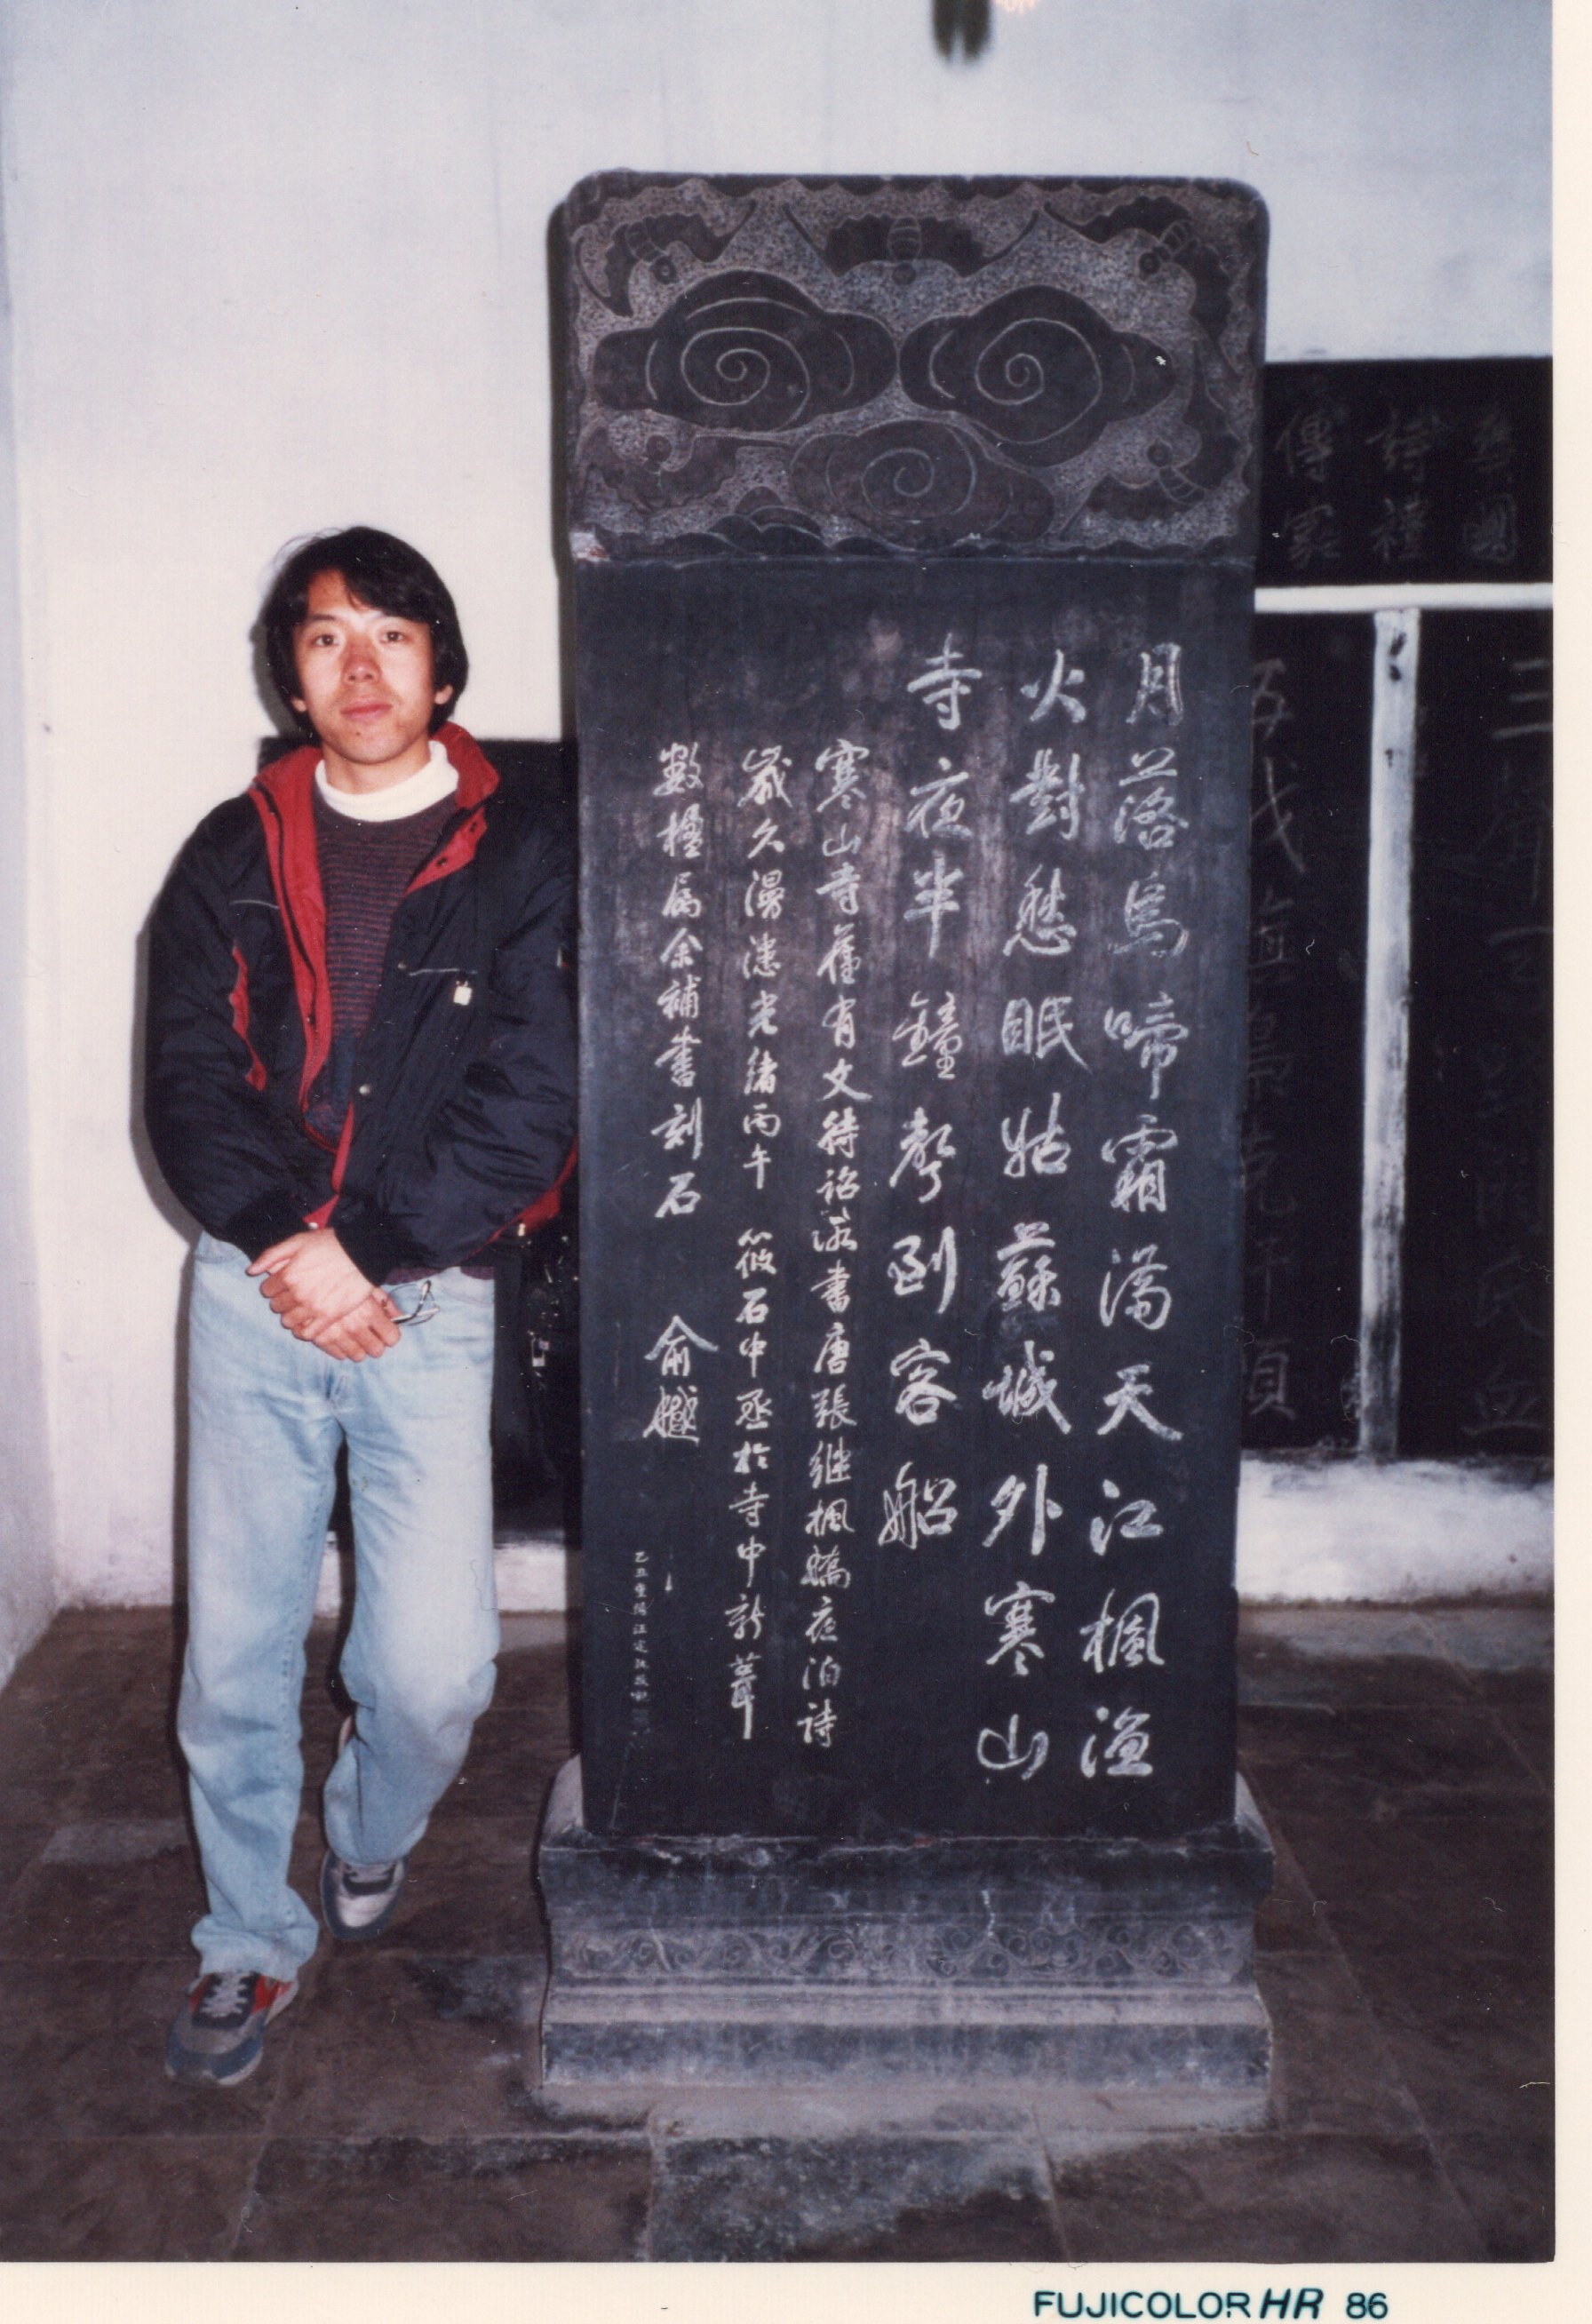 月落烏啼霜滿天江楓漁
火對愁眠姑蘇城外寒山
寺夜半鐘聲到客船
寒山寺舊有文待詔所書唐張继楓橋夜泊詩
歲久漫漶光緒丙午 筱石中丞於寺中新葺
數楹屬余補書刻石 俞樾
詩禮
傳家
FUJICOLOR HR 86